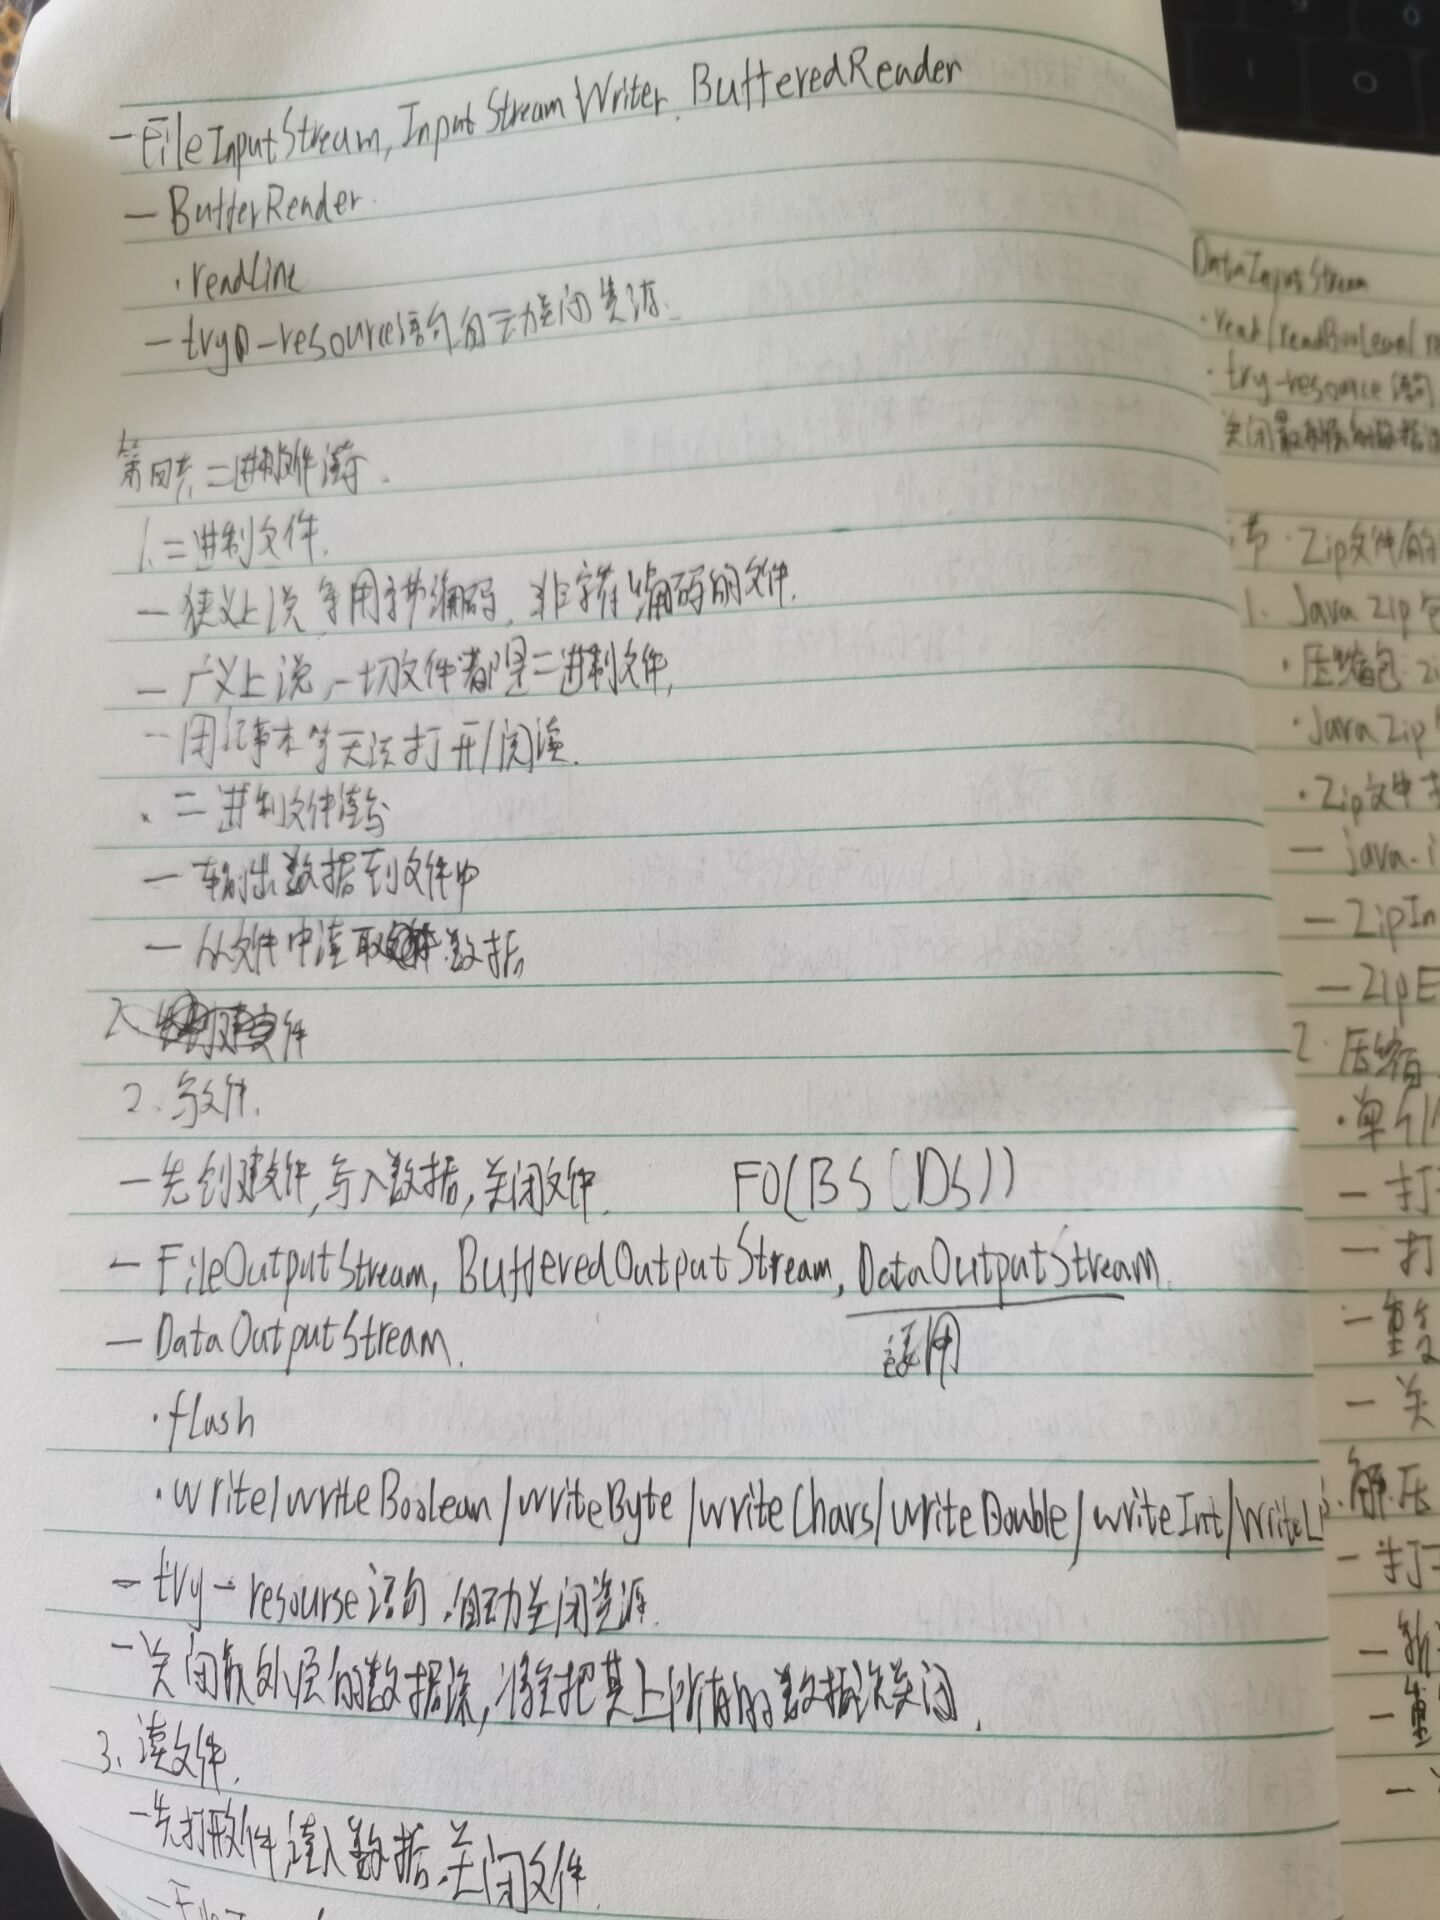 - FileInputStream, InputStreamWriter, BufferedReader
- BufferReader.
· readLine
- try-resource语句自动关闭资源.
第四节 二进制文件读写.
1. 二进制文件.
- 狭义上说 采用字节编码, 非字符编码的文件.
- 广义上说, 一切文件都是二进制文件,
- 用记事本等无法打开/阅读.
、二进制文件读写
- 输出数据到文件中
- 从文件中读取数据
2、
2. 写文件.
- 先创建文件, 写入数据, 关闭文件. FO(BS(DS))
- FileOutputStream, BufferedOutputStream, DataOutputStream.
- DataOutputStream.
· flush
· write/writeBoolean/writeByte/writeChars/writeDouble/writeInt/writeL
- try-resourse语句, 自动关闭资源.
- 关闭最外层的数据流, 将会把其上所有的数据流关闭.
3、读文件.
- 先打开文件, 读入数据, 关闭文件.
DataInputStream
· read/readBoolean/
· try-resource语句
关闭最外层的数据流
节· Zip文件的
1. Java zip包
· 压缩包: zi
· Java Zip
· Zip文件
- java.i
- ZipIn
- ZipE
2. 压缩
· 单个
- 打
- 打
- 关
解压
- 打